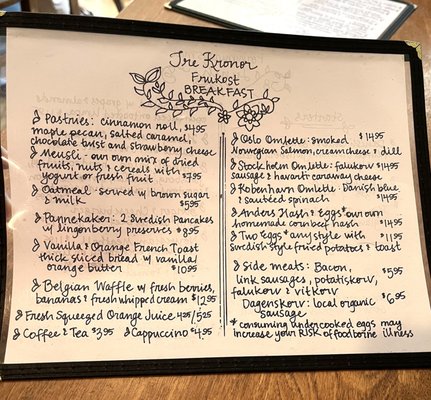 Tre Kronor
Frukost
BREAKFAST
Pastries: cinnamon roll, $4.95
maple pecan, salted caramel,
chocolate twist and strawberry cheese
Meusli - our own mix of dried
fruits, nuts & cereals with
yogurt or fresh fruit $7.95
Oatmeal - served w brown sugar
& milk $5.95
Pannekaker: 2 Swedish Pancakes
w lingenberry preserves $8.95
Vanilla & Orange French Toast
thick sliced bread w/ vanilla
orange butter $10.95
Belgian Waffle w/ fresh berries,
bananas & fresh whipped cream $12.95
Fresh Squeezed Orange Juice 4.25/5.25
Coffee & Tea $3.95 Cappuccino $4.95
Oslo Omlette: smoked $14.95
Norwegian Salmon, creamcheese & dill
Stockholm Omlette: falukorv $14.95
sausage & havarti caraway cheese
Kobenhavn Omlette: Danish blue
& sautéed spinach $14.95
Anders Hash & Eggs* our own
homemade corn beef hash $14.95
Two Eggs* any style with $11.95
Swedish style fried potatoes & toast
Side meats: Bacon, $5.95
link sausages, potatiskorv,
falukorv & vitkorv
Dagenskorv: local organic $6.95
sausage
* consuming undercooked eggs may
increase your RISK of foodborne illness